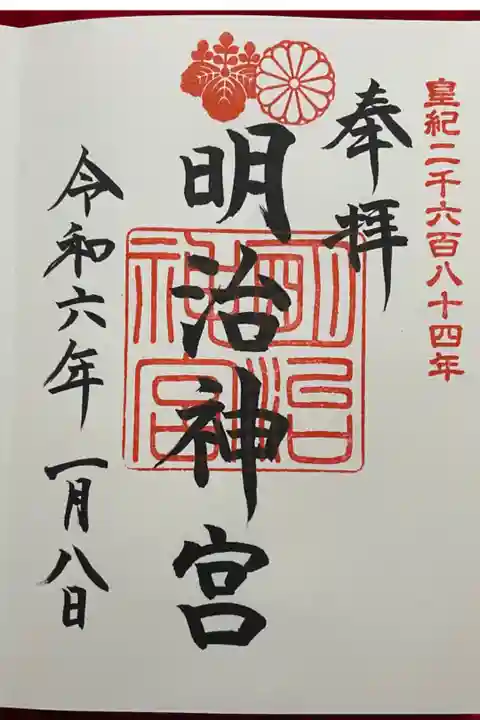 皇紀二千六百八十四年
奉拝
明治神宮
明治
神宮
令和六年一月八日